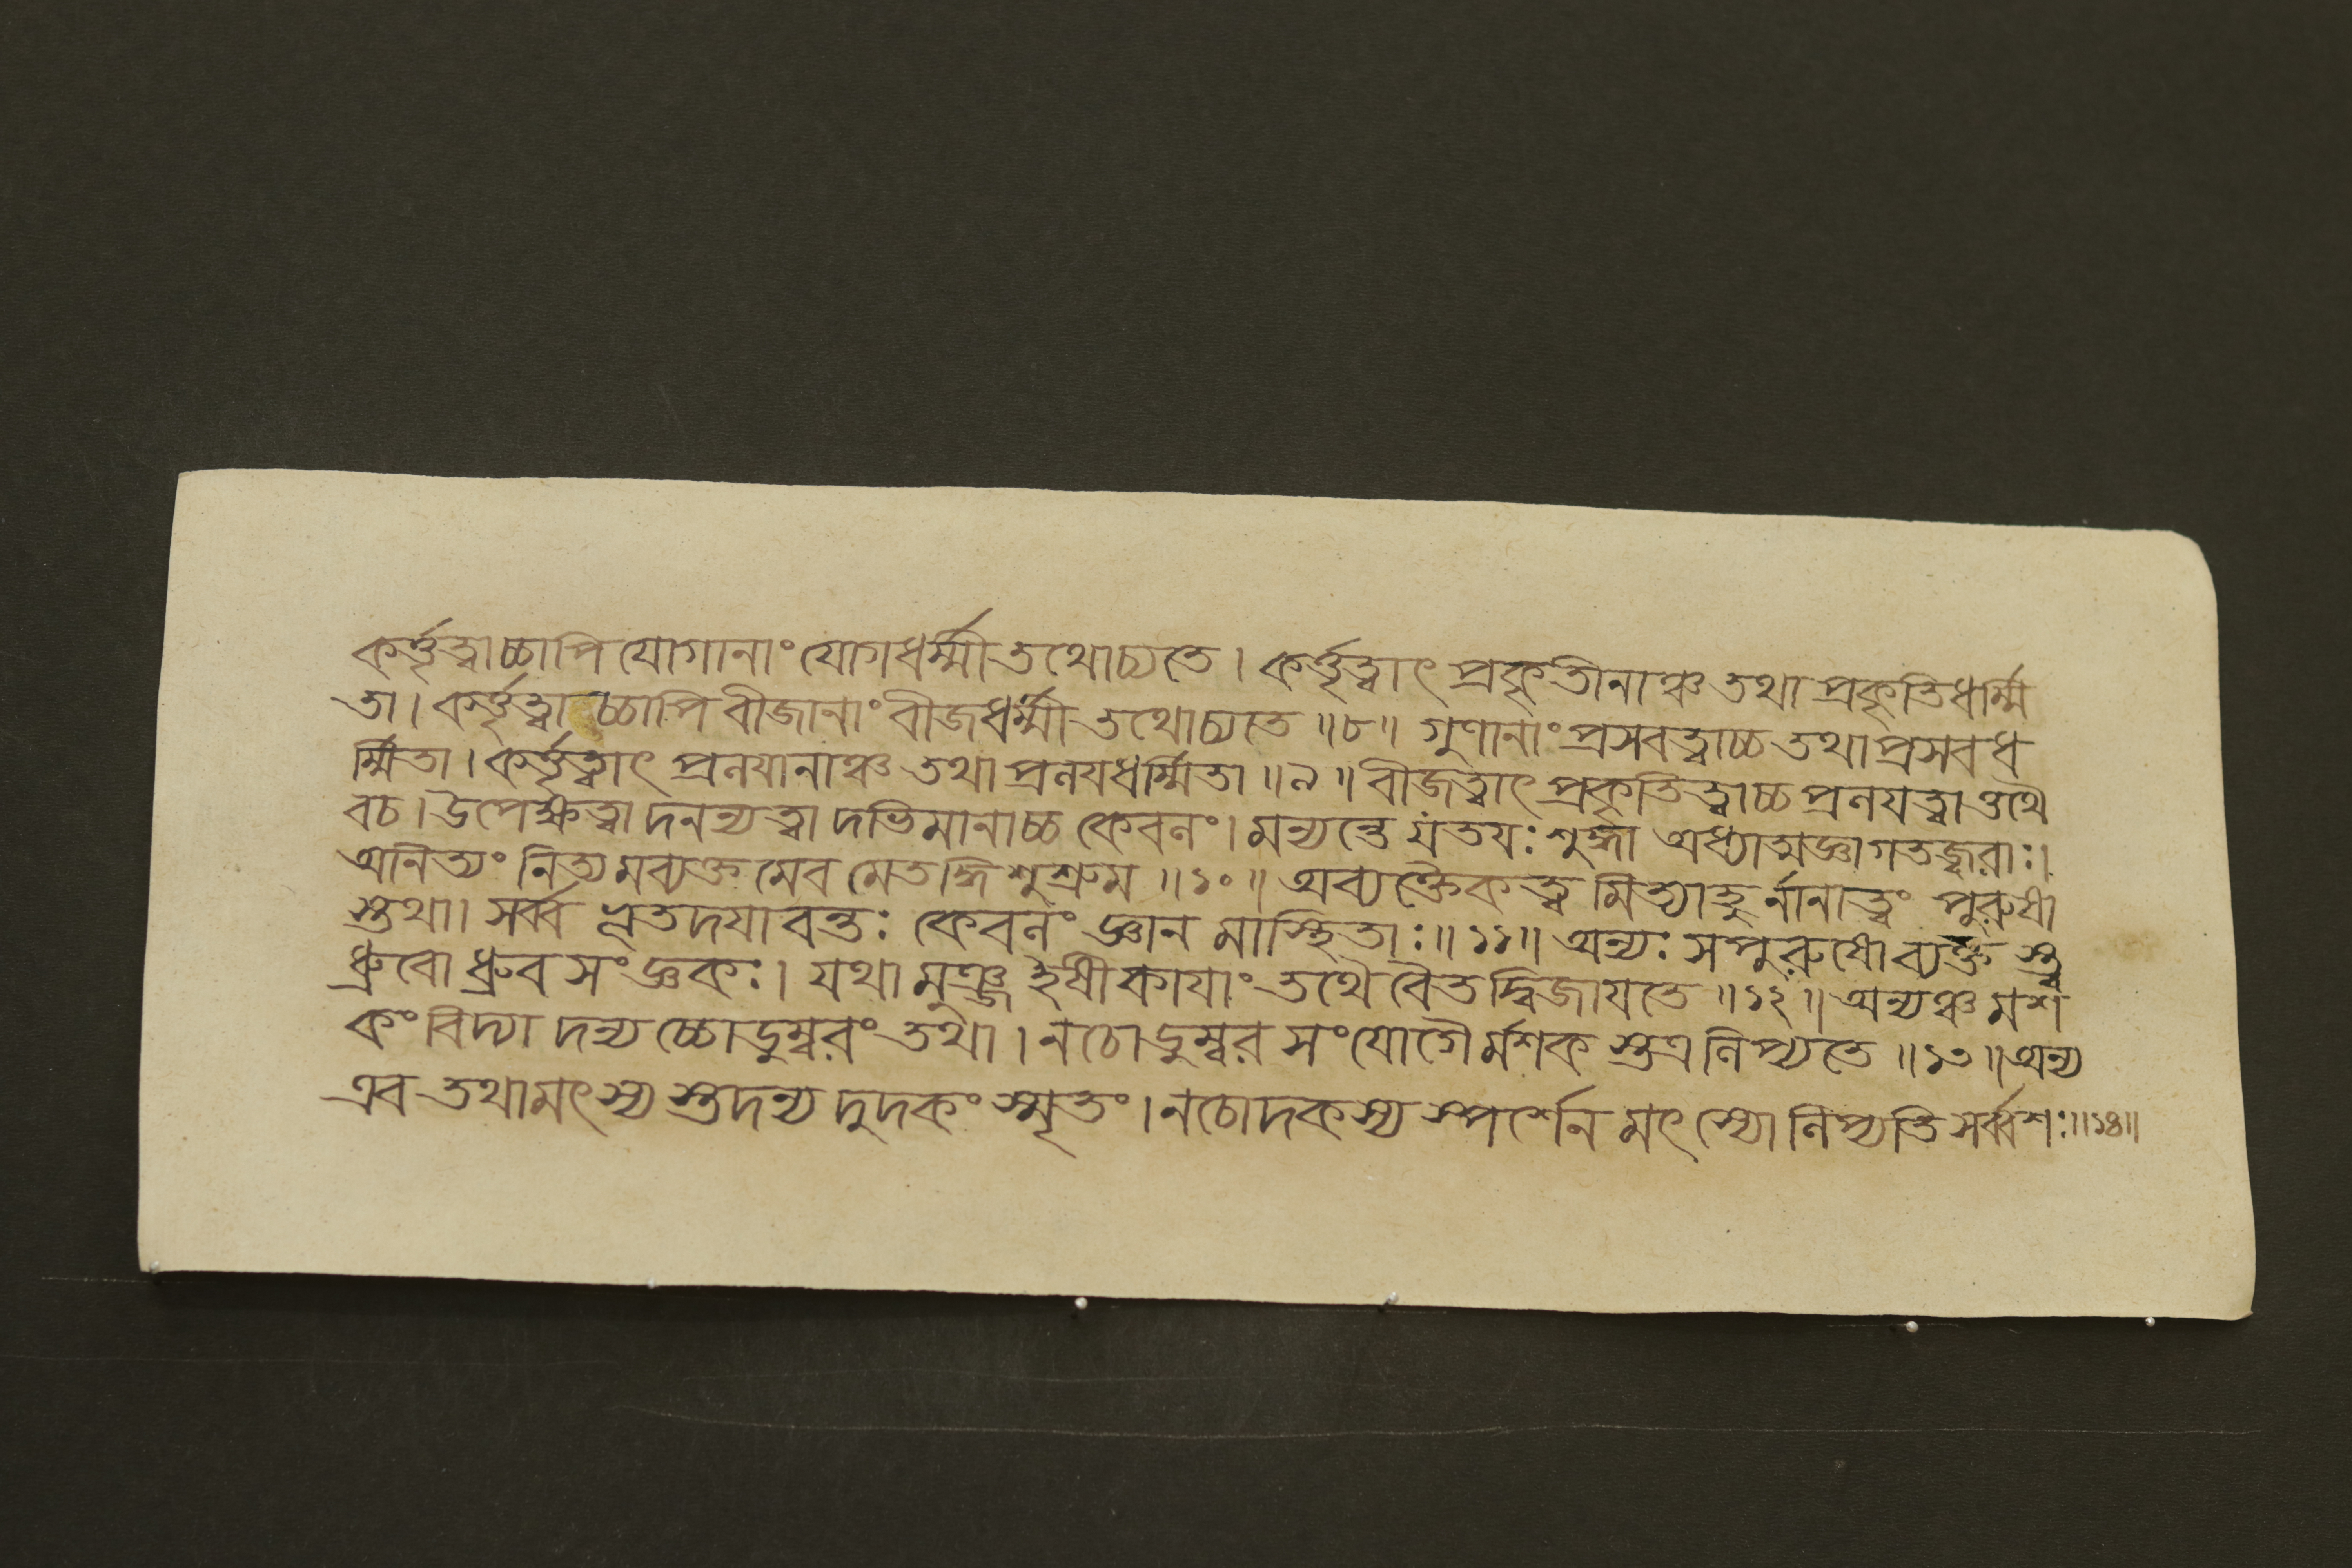 কর্ত্তৃত্বাচ্চাপি যোগানাং যোগধর্ম্মী তথোচ্যতে । কর্ত্তৃত্বাৎ প্রকৃতীনাঞ্চ তথা প্রকৃতিধর্ম্মি
তা । কর্ত্তৃত্বাচ্চাপি বীজানাং বীজধর্ম্মী তথোচ্যতে ॥৮॥ গুণানাং প্রসবত্বাচ্চ তথা প্রসবধ
র্ম্মিতা । কর্ত্তৃত্বাৎ প্রনযানাঞ্চ তথা প্রনযধর্ম্মিতা ॥৯॥ বীজত্বাৎ প্রকৃতিত্বাচ্চ প্রনযত্বাত্তথৈ
বচ । উপেক্ষত্বাদনন্যত্বাদভিমানাচ্চ কেবনং । মন্যন্তে যতযঃ শুদ্ধা অধ্যাত্মজ্ঞা গতজ্বরাঃ ।
অনিত্যং নিত্যমব্যক্তমেবমেতদ্ধি শুশ্রুম ॥১০॥ অব্যক্তৈকত্বমিত্যাহুর্নানাত্বং পুরুষা
স্তথা । সর্ব্ব এতদযাবন্তঃ কেবনং জ্ঞানমাস্থিতাঃ ॥১১॥ অন্যঃ সপুরুষোব্যক্তস্ত্ব
ধ্রুবো ধ্রুবসংজ্ঞকঃ । যথা মুঞ্জ ইষীকাযাং তথৈবৈতদ্বিজাযতে ॥১২॥ অন্যঞ্চ মশ
কং বিদ্যাদন্যচ্চোডুম্বরং তথা । নচোডুম্বরসংযোগৈর্মশকস্তত্র নিপ্যতে ॥১৩॥ অন্য
এব তথা মৎস্যস্তদন্যদুদকং স্মৃতং । নচোদকস্য স্পর্শেন মৎস্যো নিপ্যতি সর্ব্বশঃ ॥১৪॥